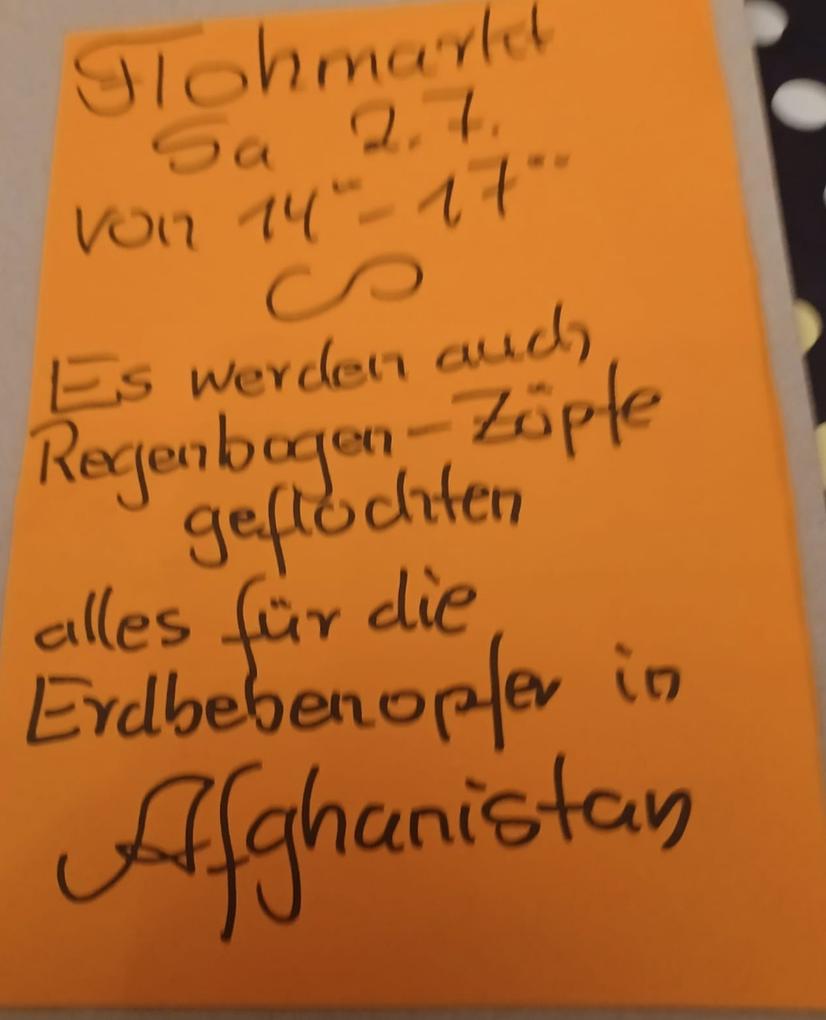 Flohmarkt
Sa 2.7.
von 14°° - 17°°
Es werden auch
Regenbogen-Zöpfe
geflochten
alles für die
Erdbebenopfer in
Afghanistan